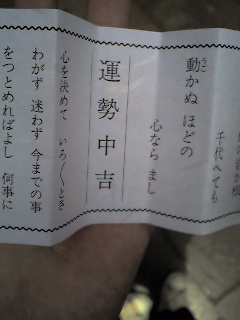 千代へても
動かぬ ほどの
うご
心なら まし
運勢中吉
心を決めて いろ〱とさ
わがず 迷わず 今までの事
をつとめればよし 何事に